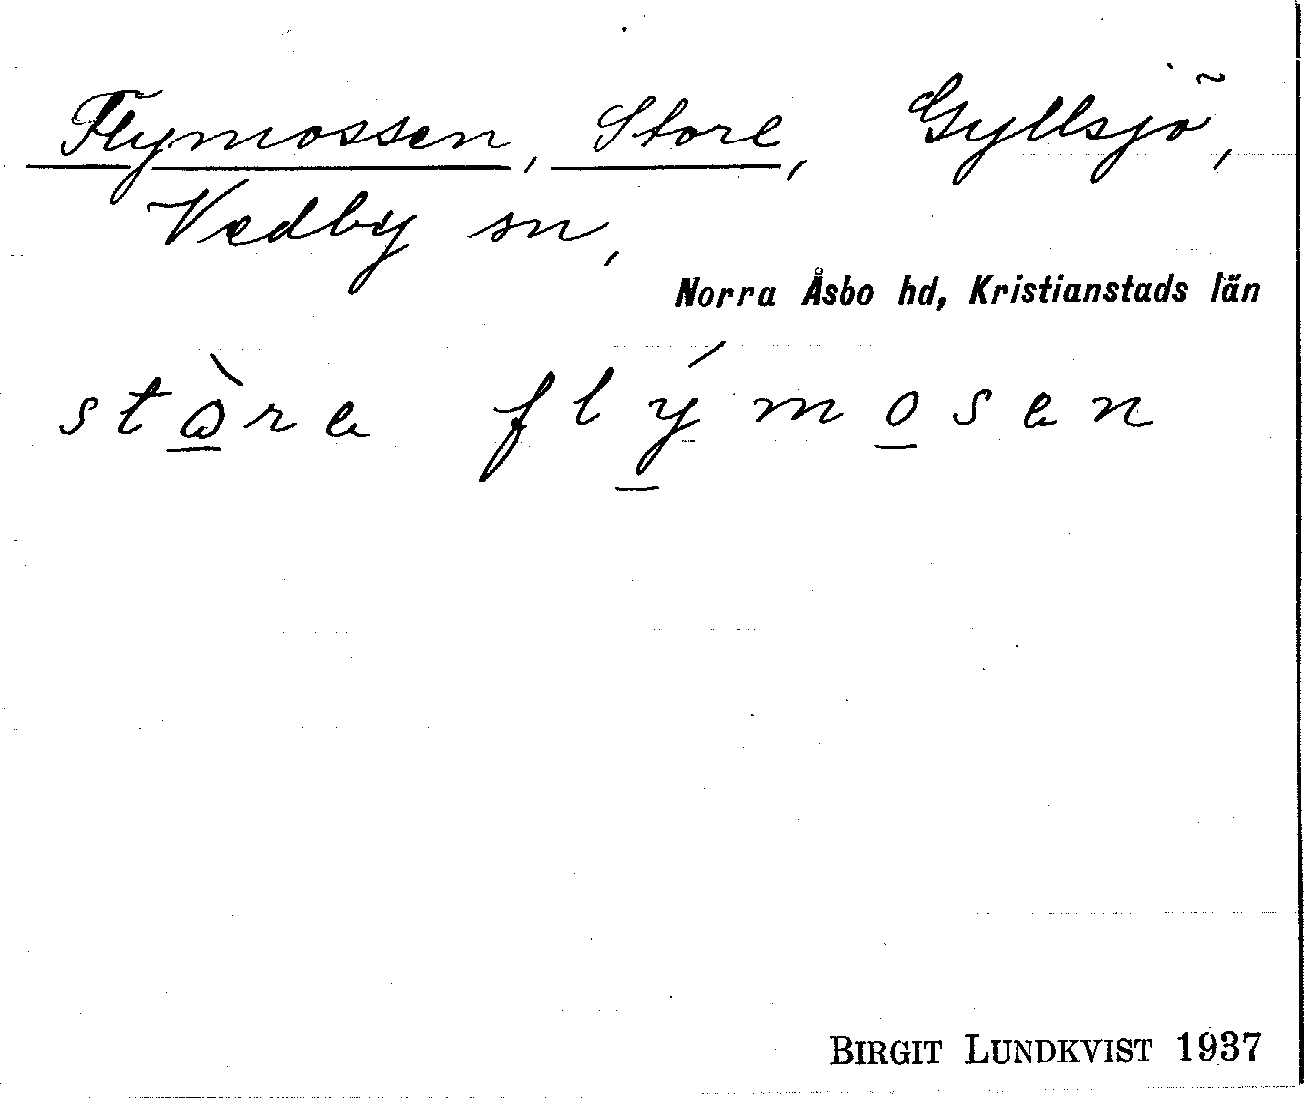 Flymossen, Store, Gyllsjö,
Vedby sn,
Norra Åsbo hd, Kristianstads län
stò̲ra flý̲mo̲sen
BIRGIT LUNDKVIST 1937